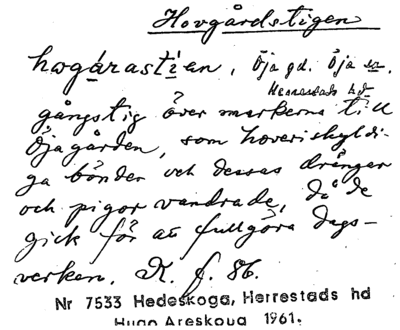 Hovgårdstigen
hogårastien, Öja gd. Öja sn.
Herrestads hd
gångstig över markerna till
Öjagården, som hoveriskyldi-
ga bönder och dessas drängar
och pigor vandrade, då de
gick för att fullgöra dags-
verken. K. f. 86.
Nr 7533 Hedeskoga, Herrestads hd
Hugo Areskoug 1961.